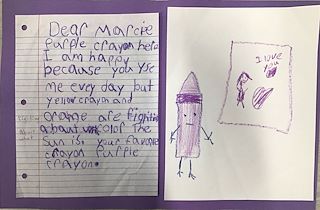 Dear Marcie
purple crayon here
I am happy
because you yse
me every day but
yellow crayon and
orange are fighting
about color the
sun is. your favorite
crayon Purple
crayon.
I love
you